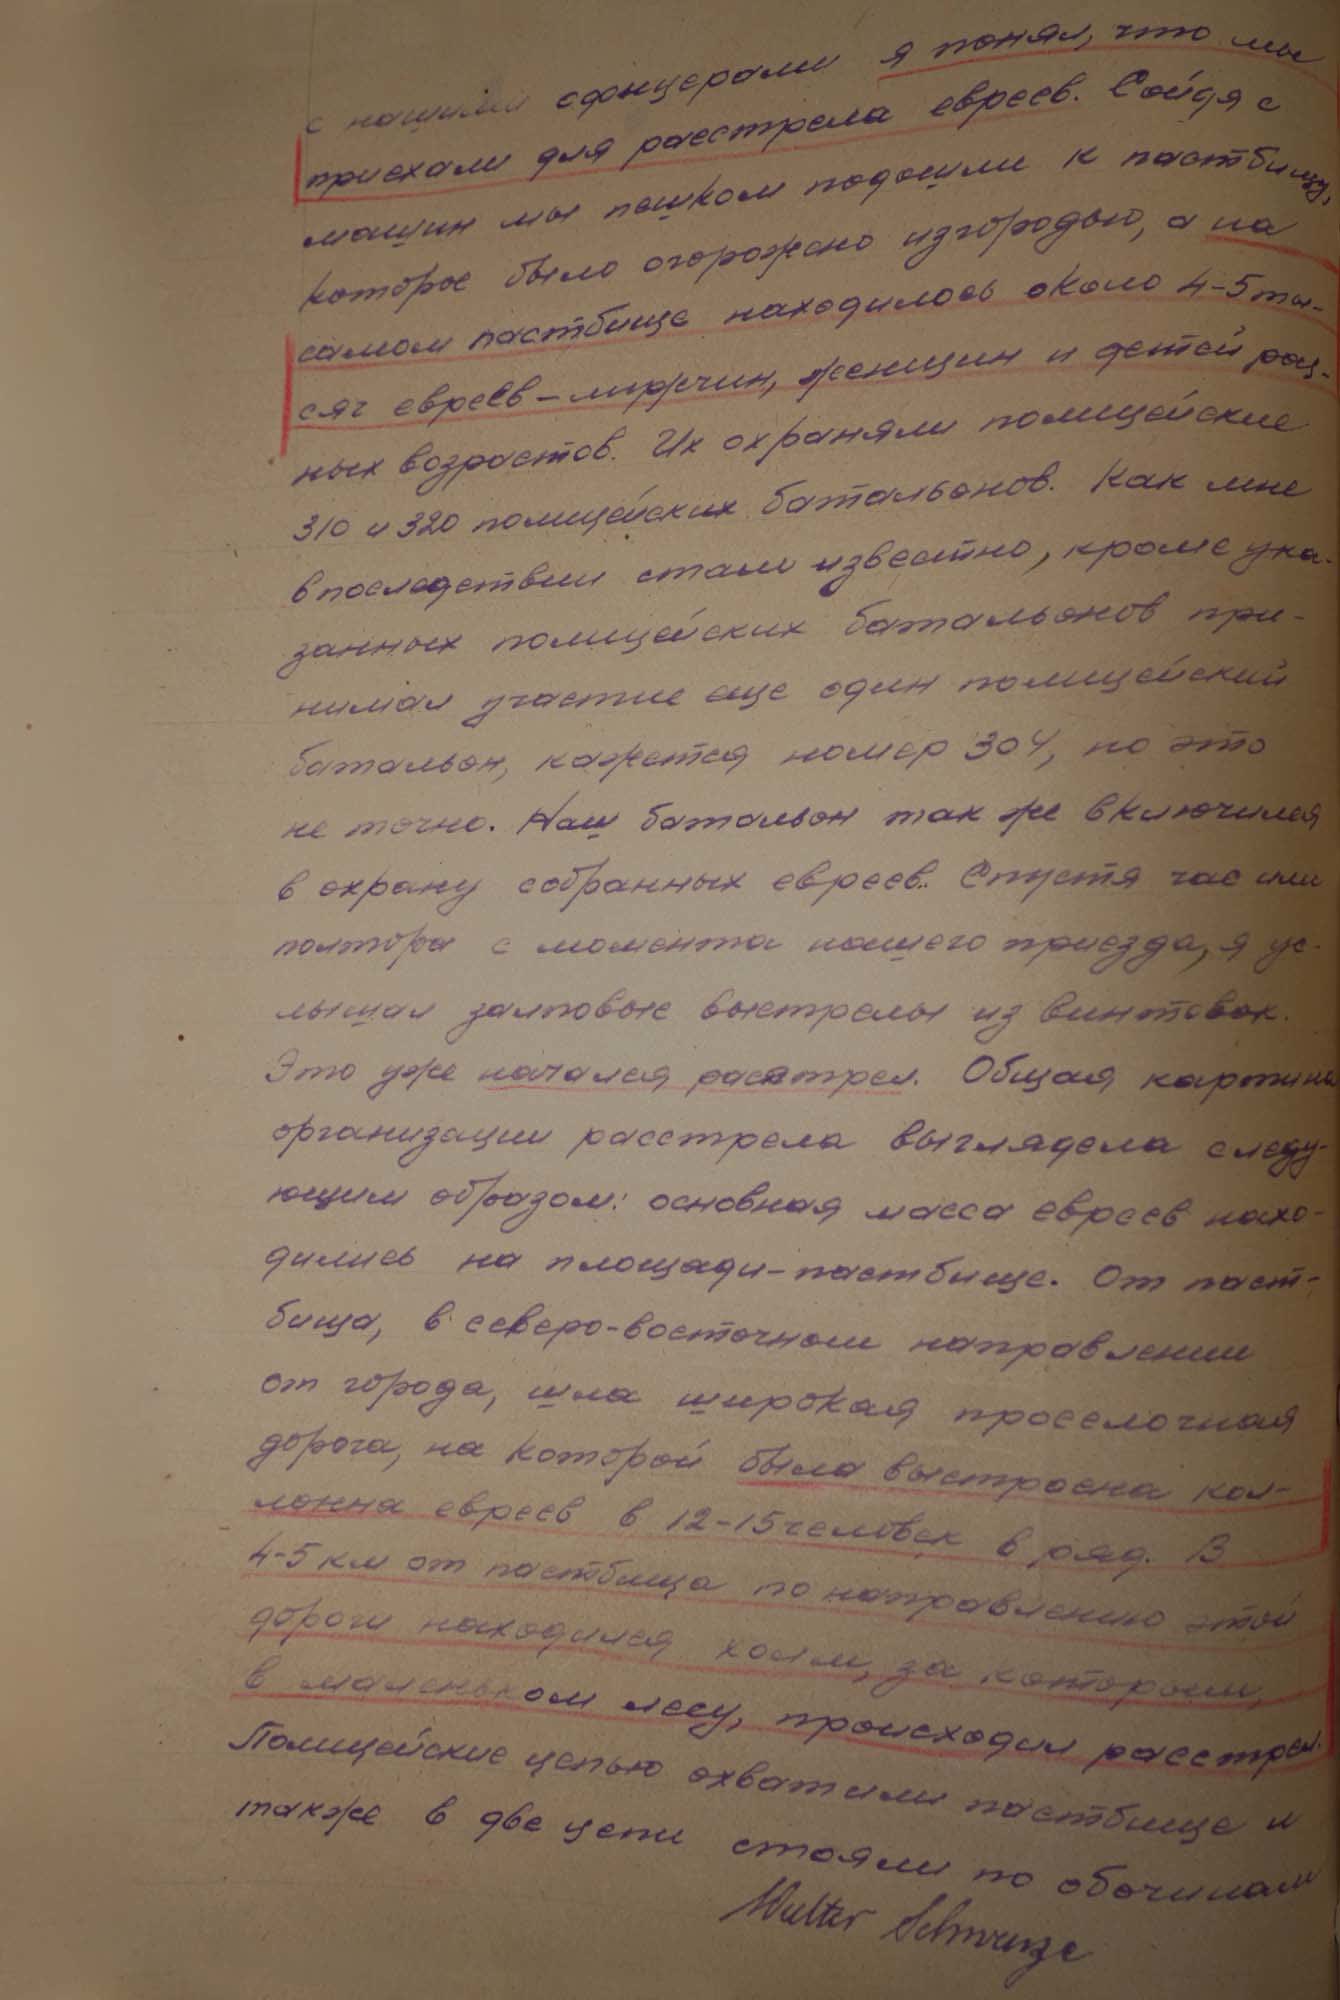 с нашими офицерами я понял, что мы
приехали для расстрела евреев. Сойдя с
машин мы пешком подошли к пастбищу,
которое было огорожено изгородью, а на
самом пастбище находилось около 4-5 ты-
сяч евреев – мужчин, женщин и детей раз-
ных возрастов. Их охраняли полицейские
310 и 320 полицейских батальонов. Как мне
впоследствии стали известно, кроме ука-
занных полицейских батальонов при-
нимал участие еще один полицейский
батальон, кажется номер 304, но это
не точно. Наш батальон так же включился
в охрану собранных евреев. Спустя час или
полтора с момента нашего приезда, я ус-
лышал залповые выстрелы из винтовок.
Это уже начался расстрел. Общая картина
организации расстрела выглядела следу-
ющим образом: основная масса евреев нахо-
дились на площади-пастбище. От паст-
бища, в северо-восточном направлении
от города, шла широкая проселочная
дорога, на которой была выстроена кол-
лонна евреев в 12-15 человек в ряд. В
4-5 км от пастбища по направлению этой
дороги находился холм, за которым,
в маленьком лесу, происходил расстрел.
Полицейские цепью охватили пастбище и
также в две цепи стояли по обочинам
Walter Schwarze